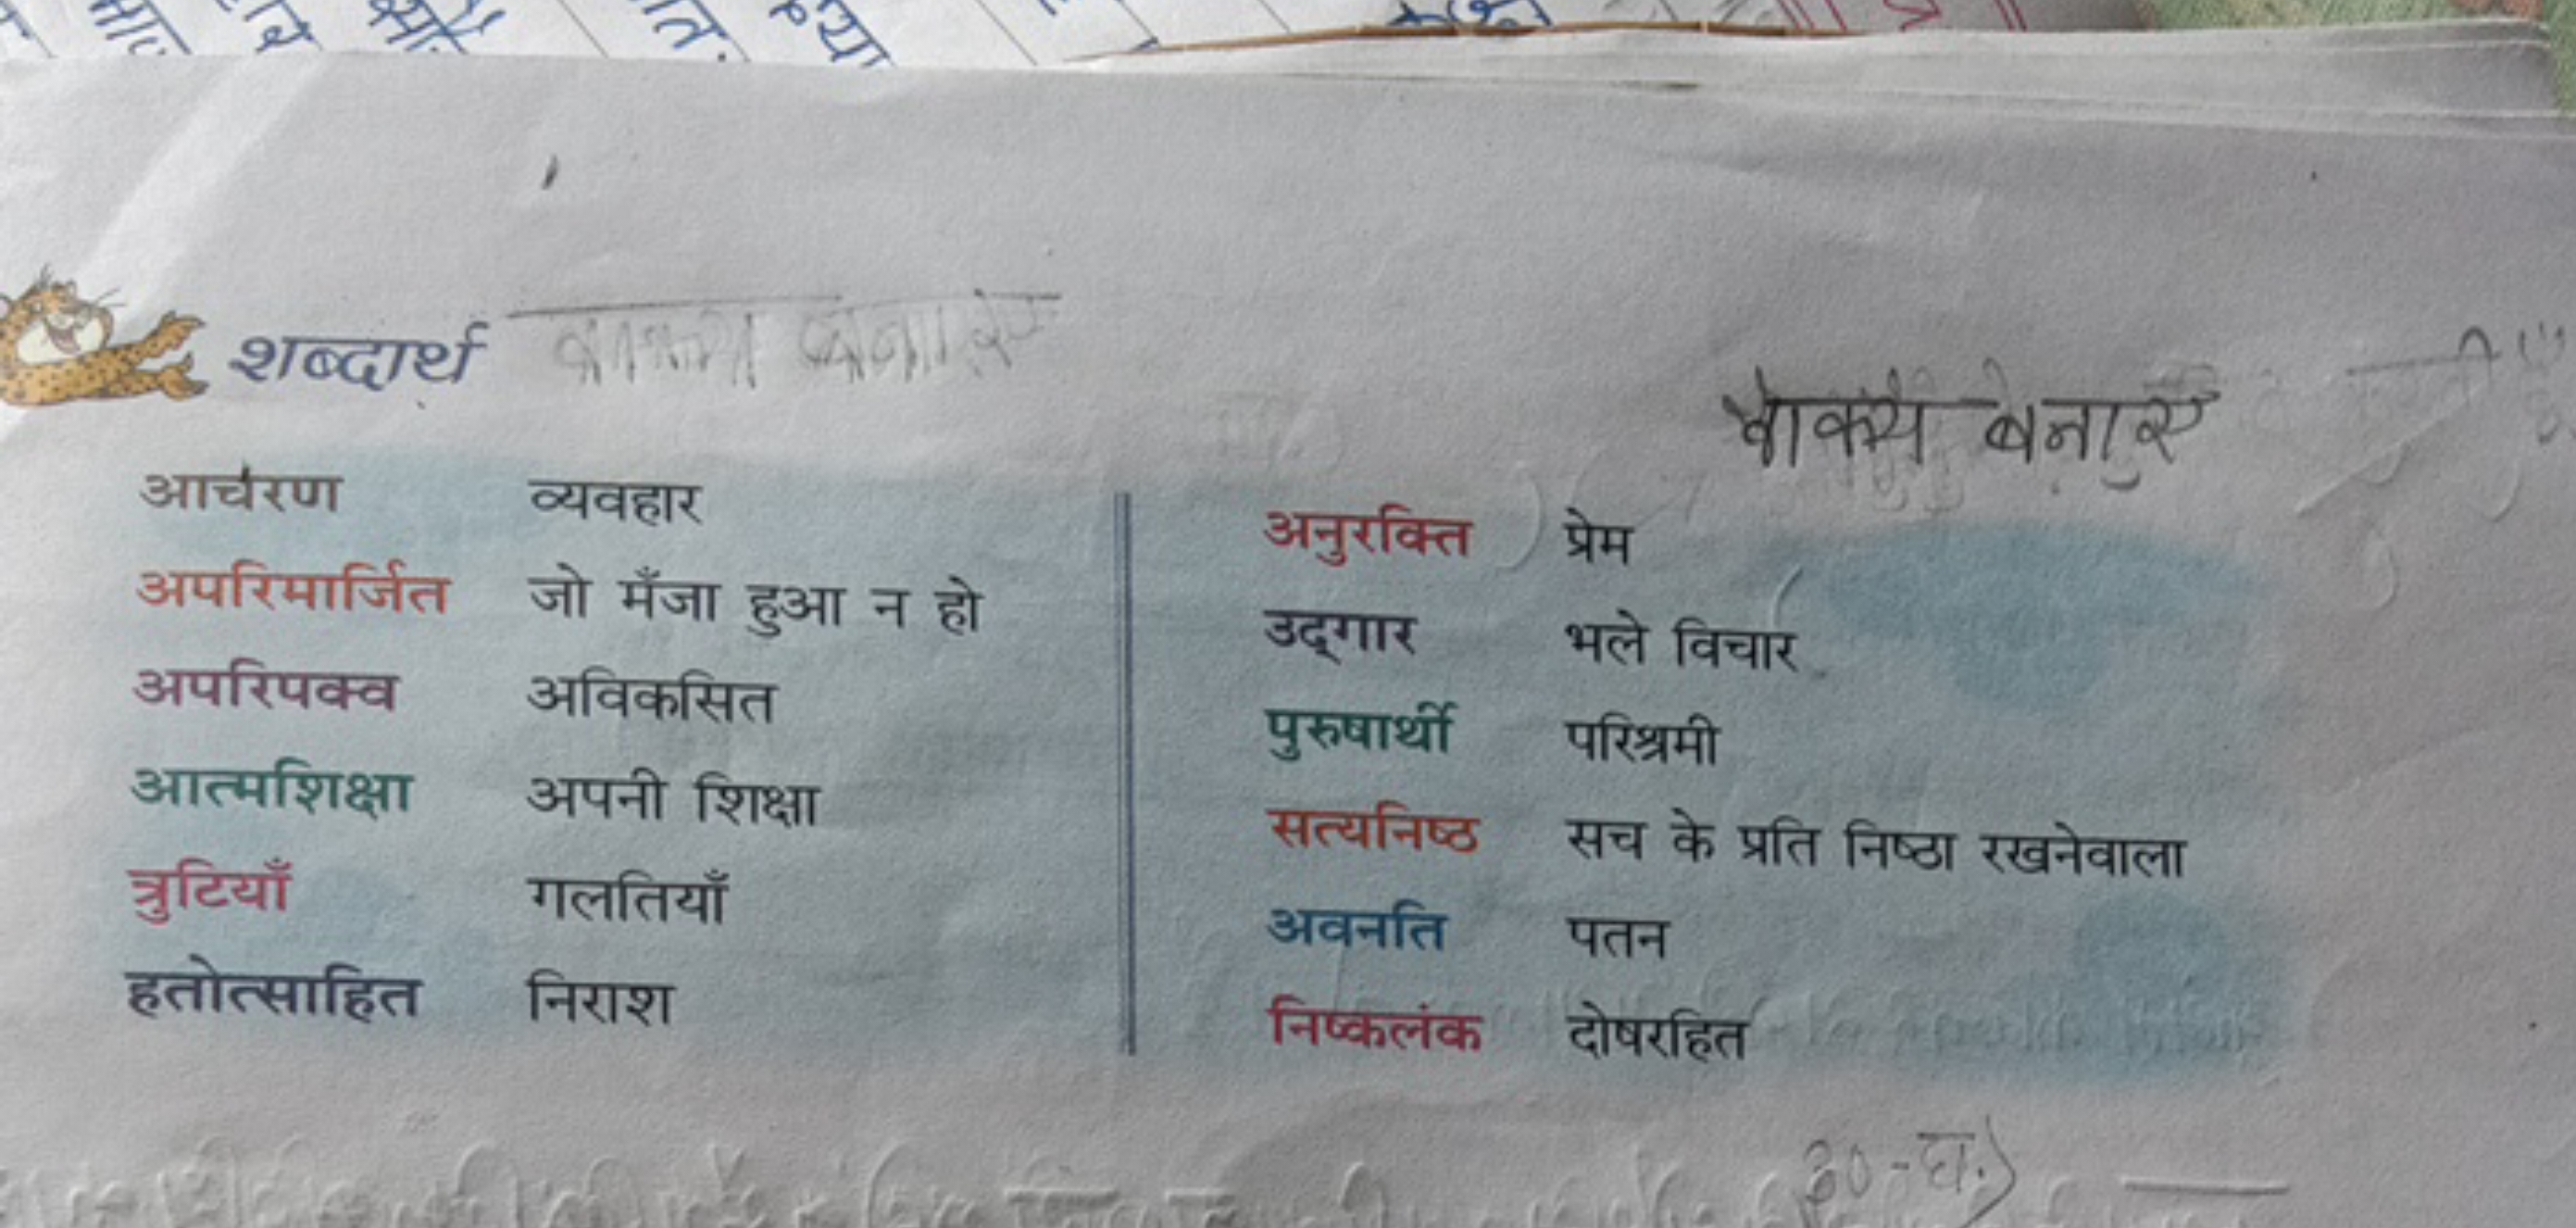 शब्दार्थ
वाक्य बनाए
आचरण व्यवहार
अपरिमार्जित जो मँजा हुआ न हो
अपरिपक्व अविकसित
आत्मशिक्षा अपनी शिक्षा
त्रुटियाँ गलतियाँ
हतोत्साहित निराश
अनुरक्ति प्रेम
उद्‌गार भले विचार
पुरुषार्थी परिश्रमी
सत्यनिष्ठ सच के प्रति निष्ठा रखनेवाला
अवनति पतन
निष्कलंक दोषरहित